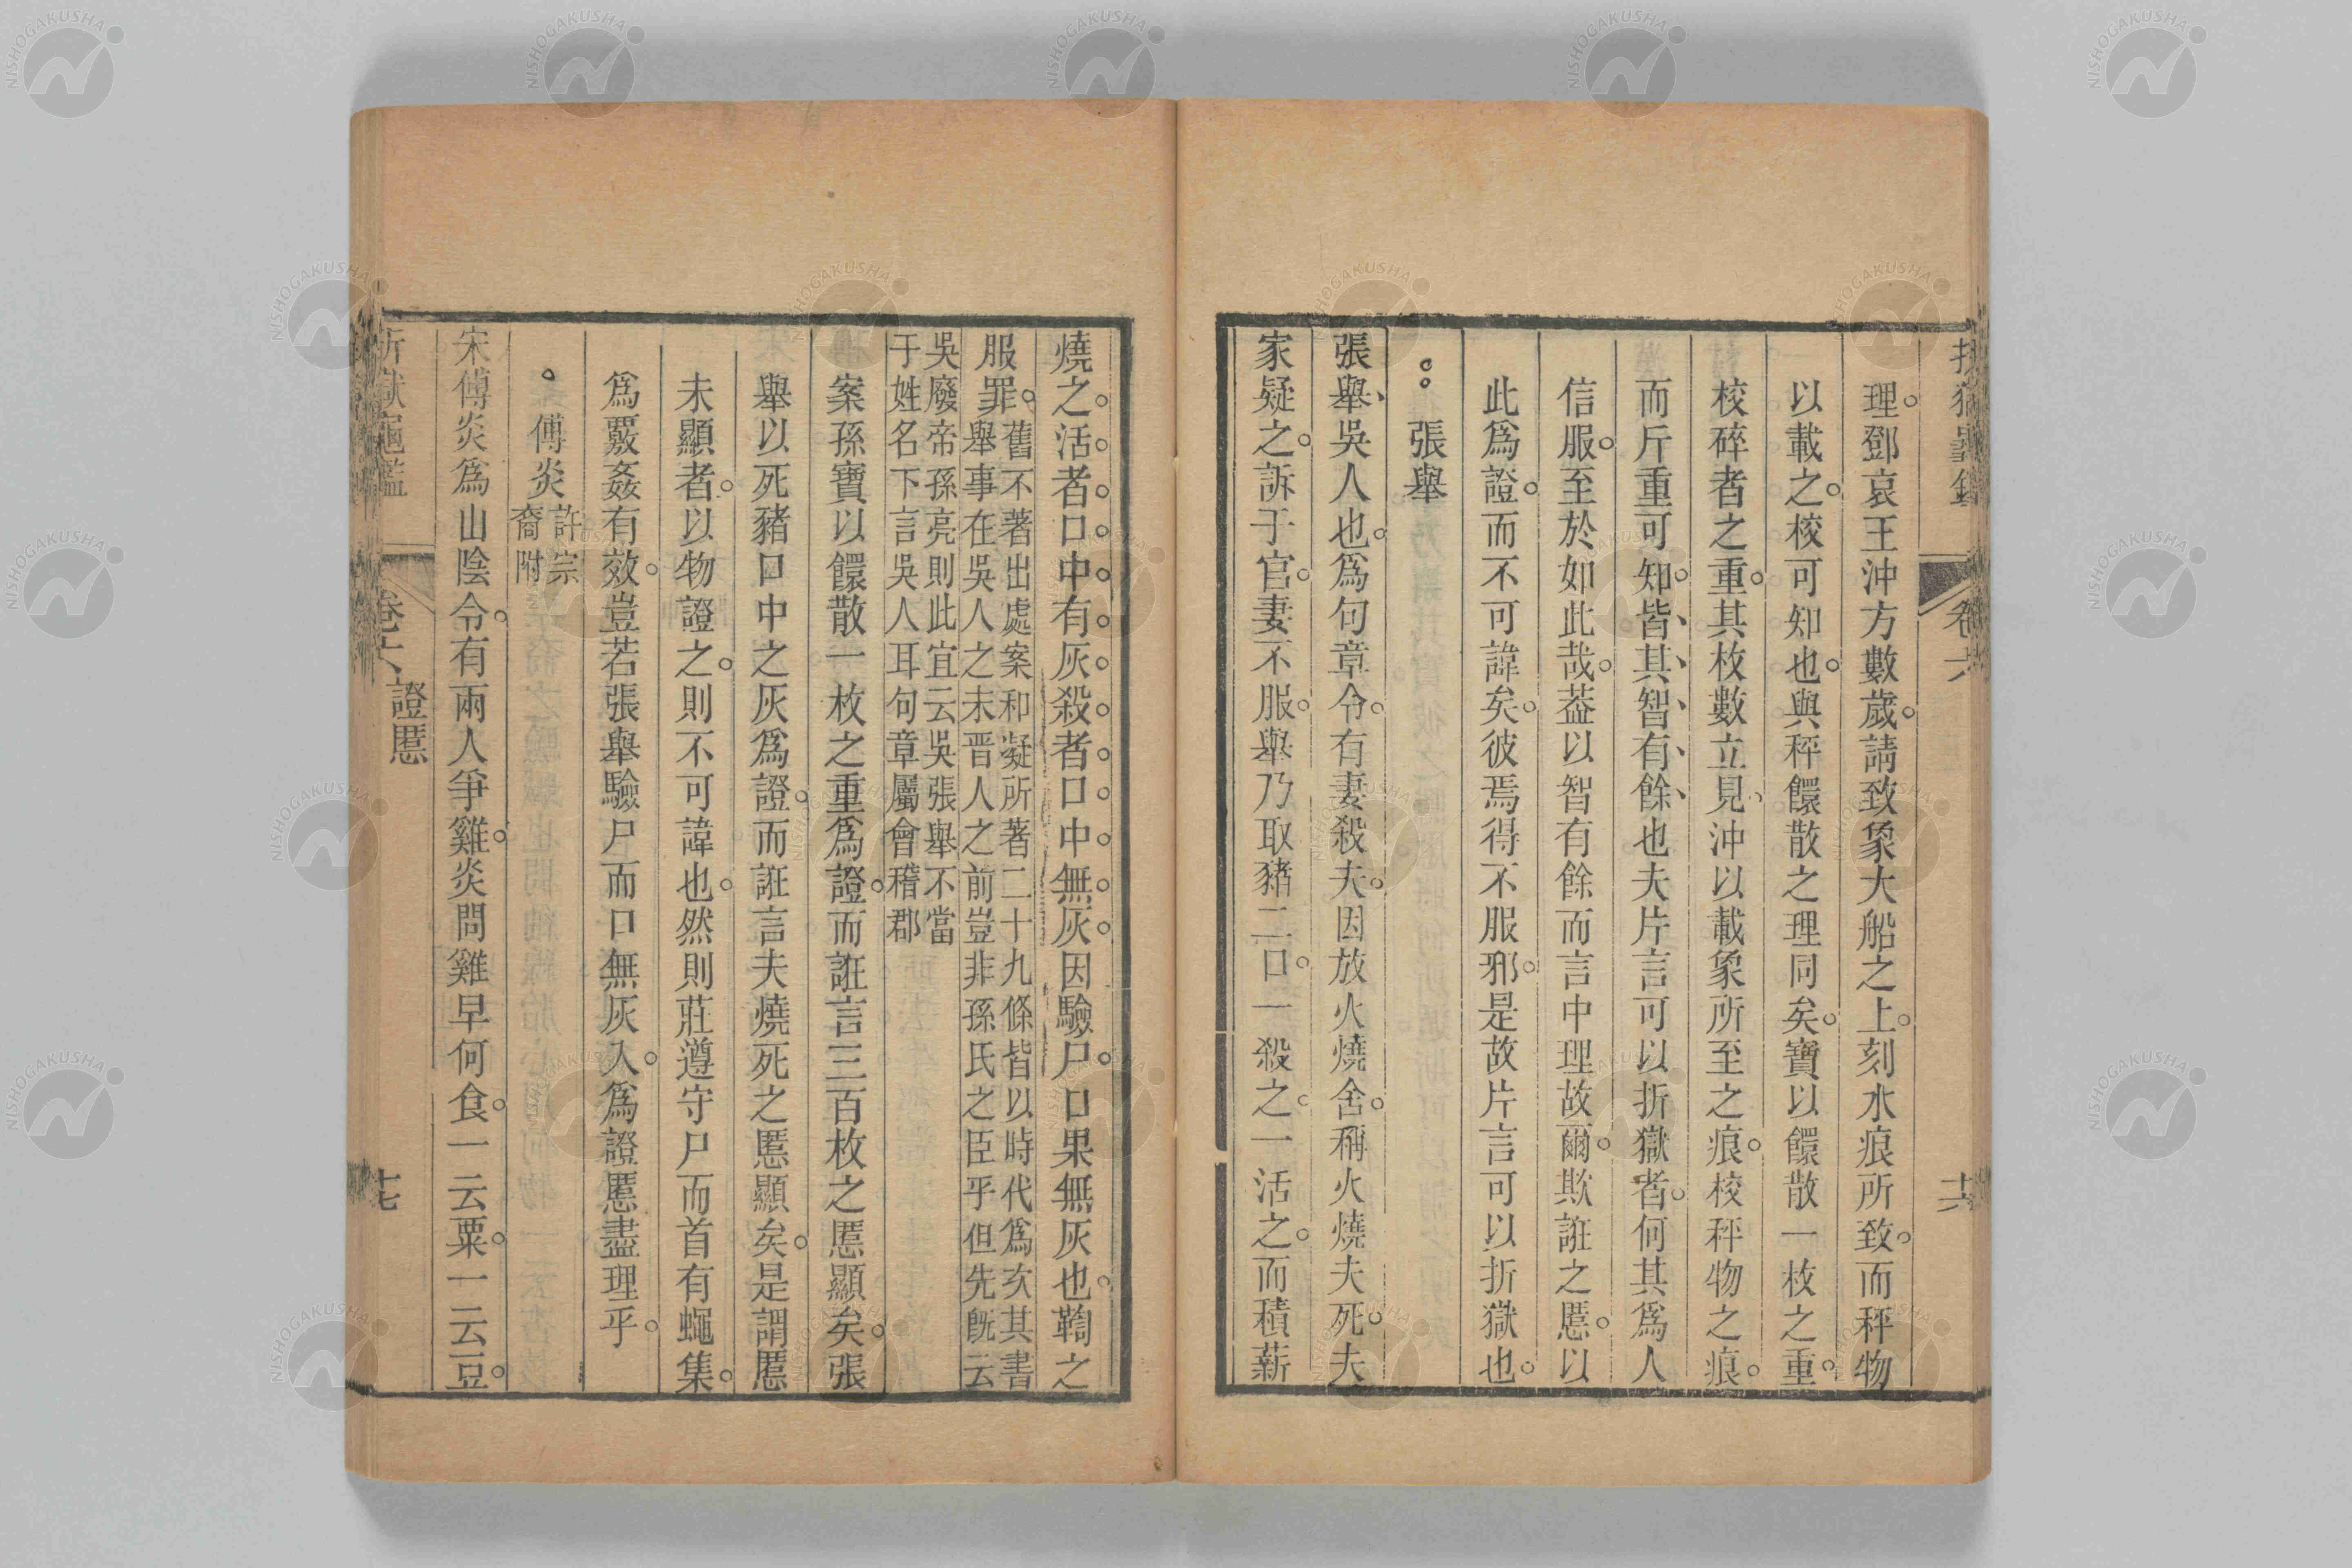 折獄龜鑑 卷六 十六
理。鄧哀王沖方數歲。請致象大船之上。刻水痕所致。而秤物
以載之。校可知也。與秤饊散之理同矣。寶以饊散一枚之重。
校碎者之重。其枚數立見、沖以載象所至之痕。校秤物之痕。
而斤重可知。皆、其、智、有、餘、也夫片言可以折獄者。何其爲人
信服。至於如此哉。葢以智有餘而言中理故爾。欺誑之慝。以
此爲證。而不可諱矣。彼焉得不服邪。是故片言可以折獄也。
張舉
張舉、吳人也。爲句章令。有妻殺夫。因放火燒舍。稱火燒夫死。夫
家疑之。訴于官。妻不服。舉乃取豬二口。一殺之。一活之。而積薪
燒之。活者口中有灰。殺者口中無灰。因驗尸。口果無灰也。鞫之
服罪。舊不著出處案和凝所著二十九條皆以時代爲次其書
舉事在吳人之末晋人之前豈非孫氏之臣乎但先旣云
吳廢帝孫亮則此宜云吳張舉不當
于姓名下言吳人耳句章屬會稽郡
案孫寶以饊散一枚之重爲證。而誑言三百枚之慝顯矣。張
舉以死豬口中之灰爲證。而誑言夫燒死之慝顯矣。是謂慝
未顯者。以物證之。則不可諱也。然則莊遵守尸而首有蠅集。
爲覈姦有效。豈若張舉驗尸而口無灰入。爲證慝盡理乎。
傅炎 許宗裔附
宋傅炎爲山陰令。有兩人爭雞。炎問雞早何食。一云粟。一云豆。
折獄龜鑑 卷六 證慝 十七